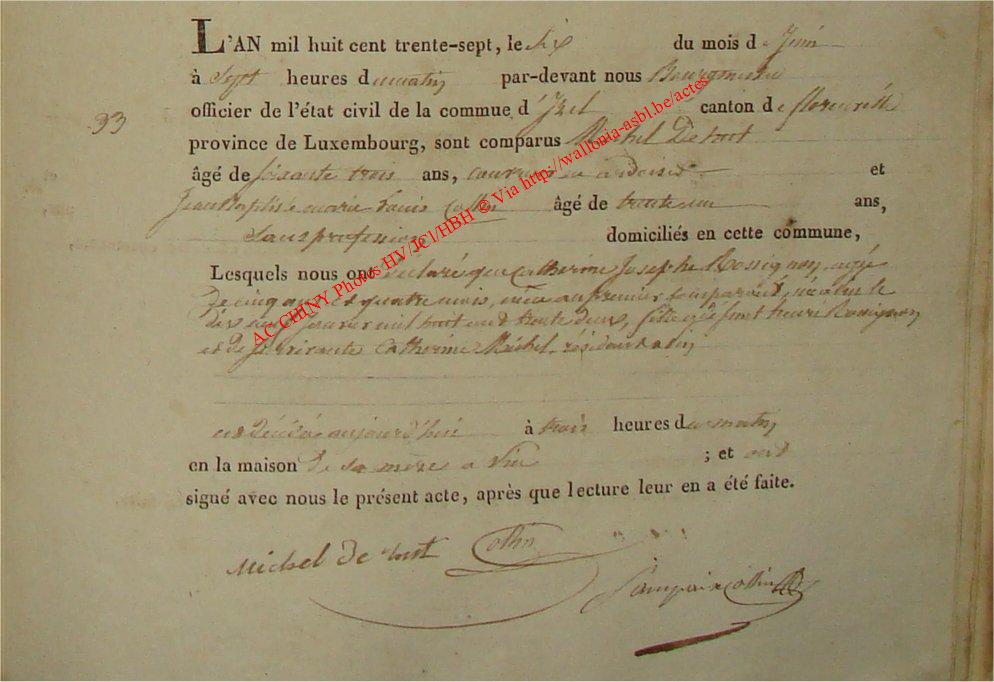 L'AN mil huit cent trente-sept, le six du mois de Juin
à sept heures du matin par-devant nous Bourgmestre
officier de l'état civil de la commune d'Izel canton de florenville
33
province de Luxembourg, sont comparus Michel De tout
âgé de soixante trois ans, couvreur en ardoises et
Jean Baptiste marie Louis Collin âgé de trente un ans,
Sans profession domiciliés en cette commune,
Lesquels nous ont déclaré que Catherine Josephe Rossignon, agée
De cinq ans et quatre mois, nièce au premier comparant, née le
Dix janvier mil huit cent trente deux, fille de feu henri Rossignon
et de survivante Catherine Michel, résidant a
est décédée aujourd'hui à trois heures du matin
en la maison de sa mère a ; et ont
signé avec nous le présent acte, après que lecture leur en a été faite.
Michel De tout Collin
Collin
AC CHINY Photos HV/JCl/HBH © Via http://wallonia-asbl.be/actes